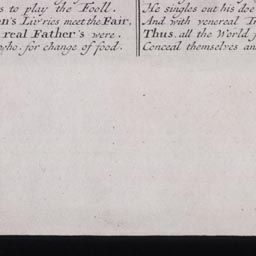 s to play the Fooll.
n's Liv'ries meet the Fair,
real Father's were.
who, for change of food.
He singles out his doe
And with venereal
Thus, all the World
Conceal themselves an